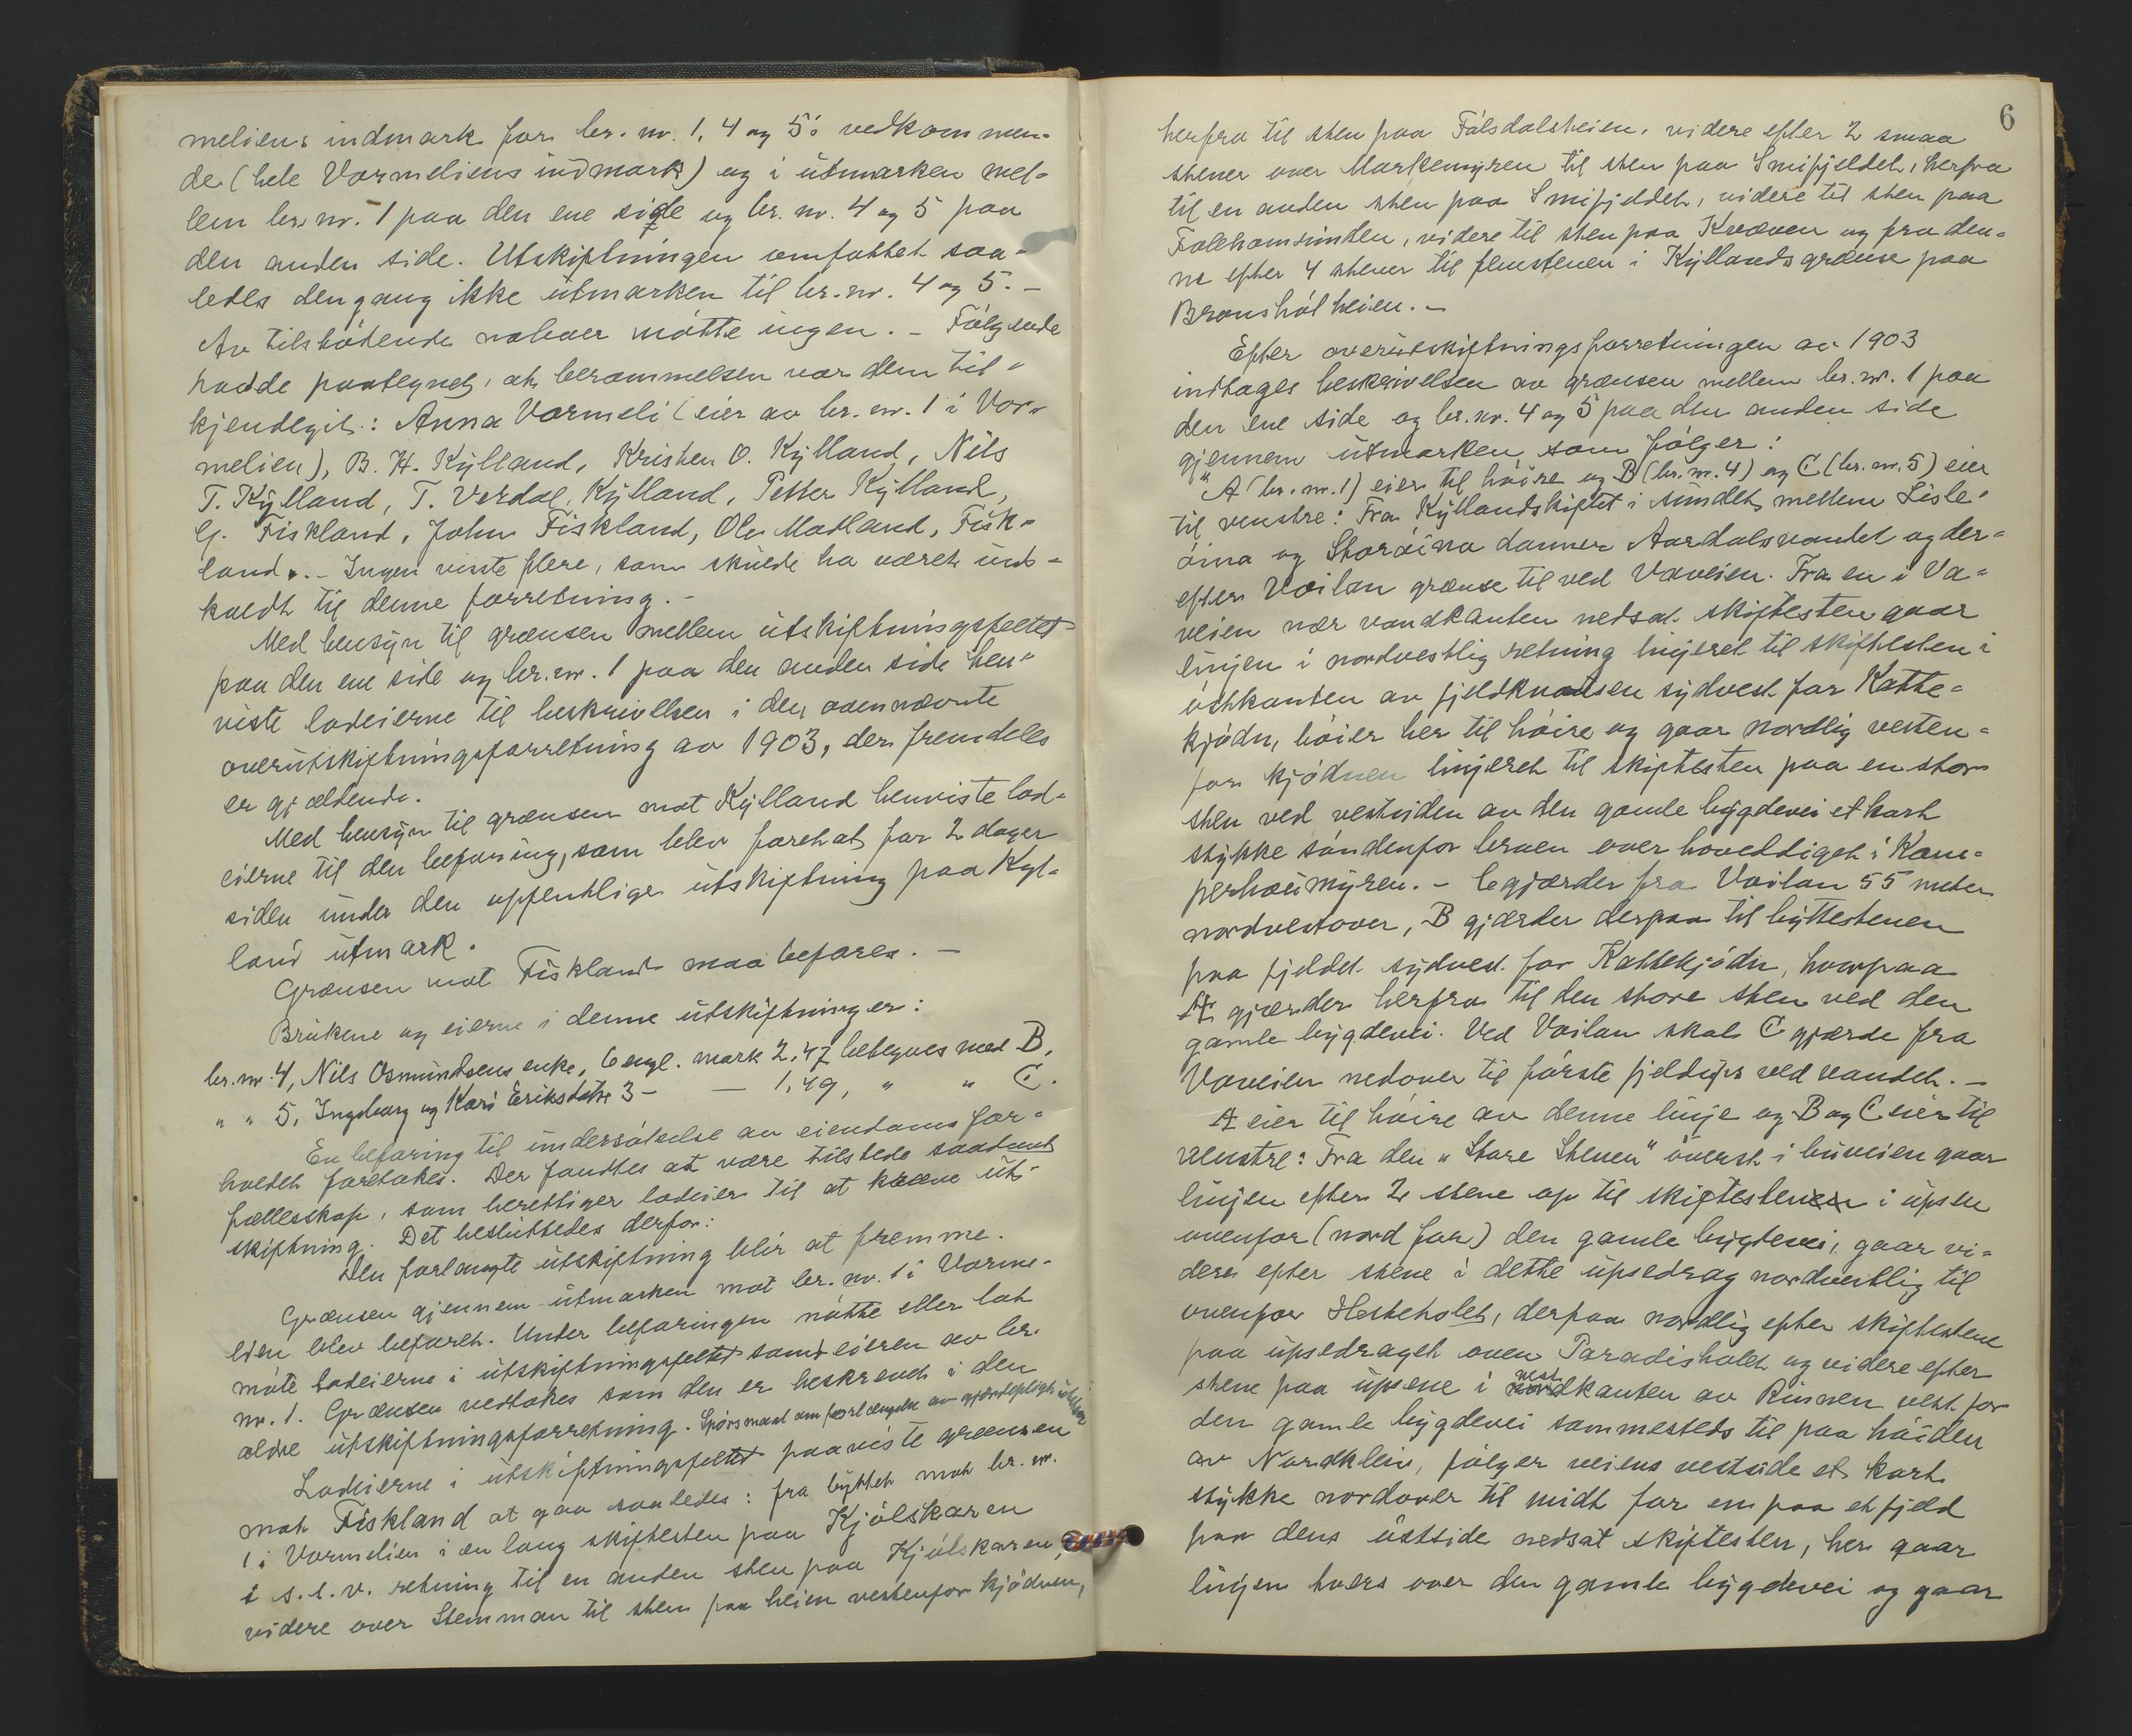 meliens indmark for br. nr. 1, 4 og 5's vedkommen-
de (hele Vormeliens indmark) og i utmarken mel-
lem br. nr. 1 paa den ene side og br. nr. 4 og 5 paa
den anden side. Utskiftningen omfattet saa-
ledes dengang ikke utmarken til br. nr. 4 og 5. -
Av tilstötende naboer mötte ingen. - Fölgende
hadde paategnet, at berammelsen var dem til-
kjendegit: Anna Vormeli (eier av br. nr. 1 i Vor-
melien), B. H. Kylland, Kristen O. Kylland, Nils
T. Kylland, T. Verdal, Kylland, Petter Kylland,
G. Fiskland, John Fiskland, Ole Madland, Fisk-
land. - Ingen visste flere, som skulde ha været ind-
kaldt til denne forretning. -
Med hensyn til grænsen mellem utskiftningsfeltet
paa den ene side og br. nr. 1 paa den anden side hen-
viste lodeierne til beskrivelsen i den ovennævnte
overutskiftningsforretning av 1903, der fremdeles
er gjældende.
Med hensyn til grænsen mot Kylland henviste lod-
eierne til den befaring, som blev foretat for 2 dager
siden under den offentlige utskiftning paa Kyl-
land utmark.
Grænsen mot Fiskland maa befares. -
Brukene og eierne i denne utskiftning er:
br. nr. 4, Nils Osmundsens enke, 6 engl. mark 2,47 betegnes med B.
" " 5, Ingeborg og Kari Eriksdøtre 3 - — 1,49, " " C.
En befaring til undersökelse av eiendomsfor-
holdet foretokes. Der fandtes at være tilstede saadant
fællesskap, som berettiger lodeier til at kræve ut-
skiftning. Det besluttedes derfor:
Den forlangte utskiftning blir at fremme.
Grænsen gjennem utmarken mot br. nr. 1 i Vorme-
lien blev befaret. Under befaringen mötte eller lot
möte lodeierne i utskiftningsfeltet samt eieren av br.
nr. 1. Grænsen vedtokes som den er beskrevet i den
ældre utskiftningsforretning. Spörsmaal om forlængelse av gjærdepligt
Lodeierne i utskiftningsfeltet paaviste grænsen
mot Fiskland at gaa saaledes: fra byttet mot br. nr.
1 i Vormelien i en lang skiftesten paa Kjölskaren
i s.s.v. retning til en anden sten paa Kjölskaren,
videre over Stemman til sten paa heien vestenfor kjödnen,
6
herfra til sten paa Fölsdalsheien, videre efter 2 smaa
stener over Markemyren til sten paa Smifjeldet, herfra
til en anden sten paa Smifjeldet, videre til sten paa
Folehomsunden, videre til sten paa Kvæven og fra den-
ne efter 4 stener til flenstenen i Kyllandsgrænse paa
Bronshölheien. -
Efter overutskiftningsforretningen av 1903
indtages beskrivelsen av grænsen mellem br. nr. 1 paa
den ene side og br. nr. 4 og 5 paa den anden side
gjennem utmarken som fölger:
"A (br. nr. 1) eier til höire og B (br. nr. 4) og C (br. nr. 5) eier
til venstre: Fra Kyllandskiftet i sundet mellem Lisle-
öina og Storöina danner Aardalsvandet og der-
efter Voilan grænse til ved Vaveien. Fra en i Va-
veien nær vandkanten nedsat skiftesten gaar
linjen i nordvestlig retning linjeret til skiftesten i
östkanten av fjeldknatsen sydvest for Katte-
kjödn, böier her til höire og gaar nordlig vesten-
for kjödnen linjeret til skiftesten paa en stor
sten ved vestsiden av den gamle bygdevei et kort
stykke söndenfor broen over hoveddiget i Kam-
perhaumyren. - C gjærder fra Voilan 55 meter
nordvestover, B gjærder derpaa til byttestenen
paa fjeldet sydvest for Kattekjödn, hvorpaa
A gjærder herfra til den store sten ved den
gamle bygdevei. Ved Voilan skal C gjærde fra
Vaveien nedover til förste fjeldups ved vandet. -
A eier til höire av denne linje og B og C eier til
venstre: Fra den "Store Stenen" överst i buveien gaar
linjen efter 2 stene op til skiftestenen i upsen
ovenfor (nord for) den gamle bygdevei, gaar vi-
dere efter stene i dette upsedrag nordvestlig til
ovenfor Hesteholet, derpaa nordlig efter skiftestene
paa upsedraget oven Paradisholet og videre efter
vest
stene paa upsene i nordkanten av Rinnen vest for
den gamle bygdevei sammesteds til paa höiden
av Nordkleiv, fölger veiens vestside et kort
stykke nordover til midt for en paa et fjeld
paa dens östside nedsat skiftesten, her gaar
linjen tvers over den gamle bygdevei og gaar